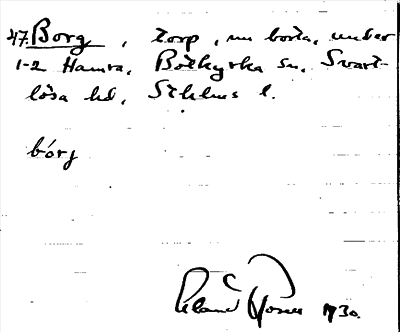 47. Borg, torp, nu borta, under
1-2 Hamra, Botkyrka sn, Svart-
lösa hd, Sthlms l.
bórj
1930.